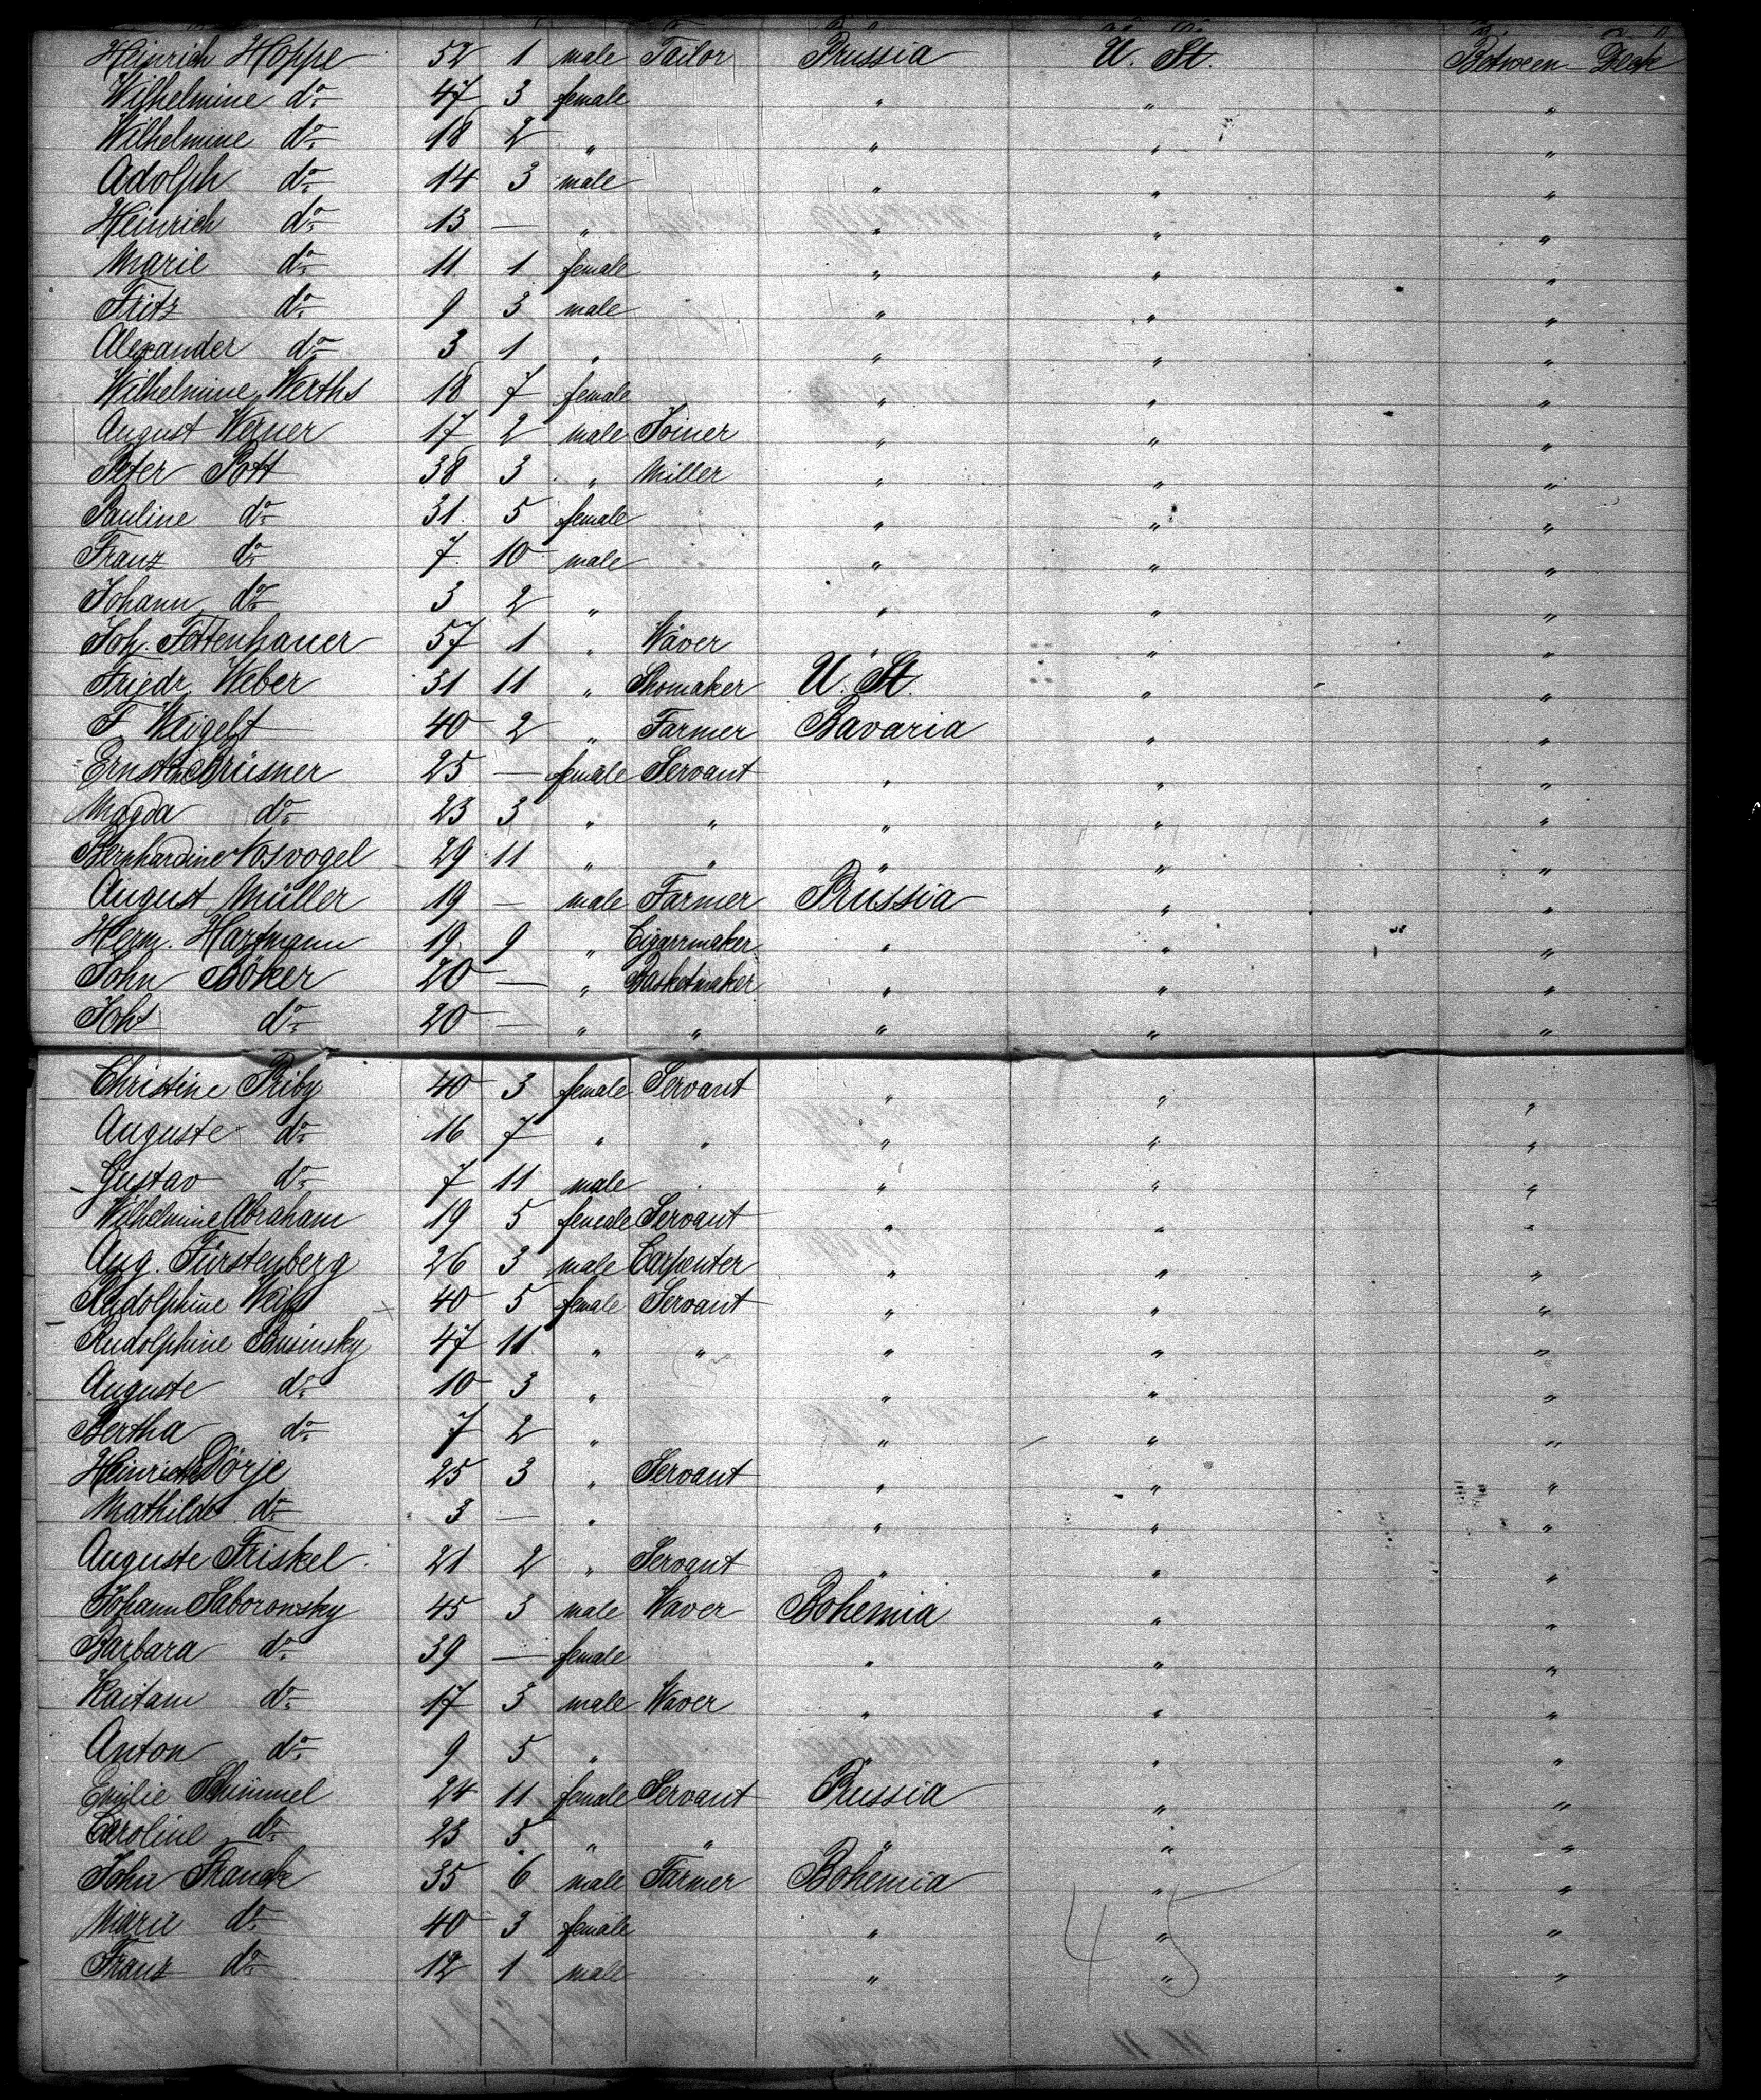 Heinrich Hoppe 52 1 male Tailor Prussia U. St. Between Deck
Wilhelmine do 47 3 female " " "
Wilhelmine do 18 2 " " " "
Adolph do 14 3 male " " "
Heinrich do 13 — " " " "
Marie do 11 1 female " " "
Fritz do 9 3 male " " "
Alexander do 3 1 " " " "
Wilhelmine Werths 18 7 female " " "
August Werner 17 2 male Joiner " " "
Peter Pott 38 3 " Miller " " "
Pauline do 31 5 female " " "
Franz do 7 10 male " " "
Johann do 3 2 " " " "
Joh. Fettenhauer 57 1 " Waver " " "
Friedr. Weber 31 11 " Shomaker U. St. " "
F. Weigelt 40 2 " Farmer Bavaria " "
Ernstine 25 — female Servant " " "
Magda do 23 3 " " " " "
Bernhardine Vosvogel 29 11 " " " " "
August Müller 19 — male Farmer Prussia " "
Herm. Hartmann 19 9 " Cigarrmaker " " "
John Böker 20 — " Basketmaker " " "
Johs do 20 — " " " " "
Christine Priby 40 3 female Servant " " "
Auguste do 16 7 " " " " "
Gustav do 7 11 male " " "
Wilhelmine Abraham 19 5 female Servant " " "
Aug. Fürstenberg 26 3 male Carpenter " " "
Rudolphine Weiß 40 5 female Servant " " "
Rudolphine 47 11 " " " " "
Auguste do 10 3 " " " "
Bertha do 7 2 " " " "
Dörje 25 3 " Servant " " "
Mathilde do 3 — " " " "
Auguste Friskel 21 2 " Servant " " "
Johann Saborowsky 45 3 male Waver Bohemia " "
Barbara do 39 — female " " "
Kaitam do 17 3 male Waver " " "
Anton do 9 5 " " " "
Emilie Schimmel 24 11 female Servant Prussia " "
Caroline do 23 5 " " " " "
John Franck 35 6 male Farmer Bohemia " "
Marie do 40 3 female " " "
Franz do 12 1 male " " "
45